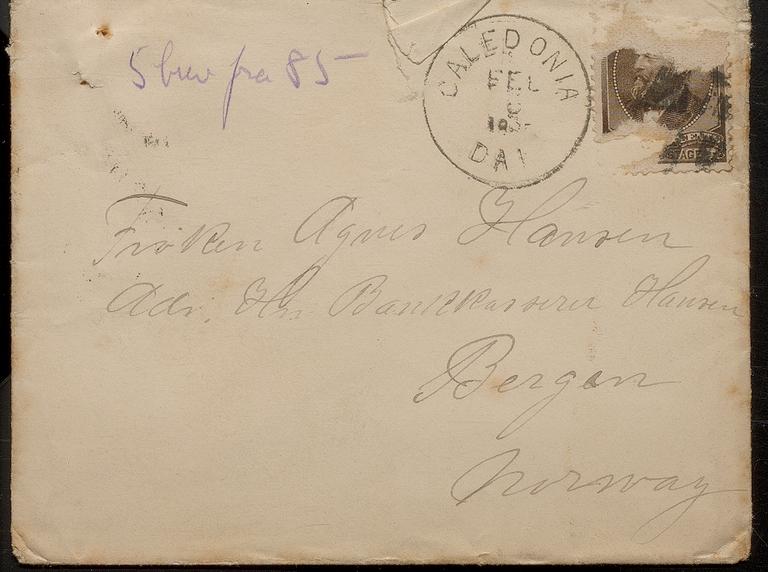 5 brev fra 85
CALEDONIA
FEB
DAK
Frøken Agnes Hansen
Adr. Hr. Bankkasserer Hansen
Bergen
Norway